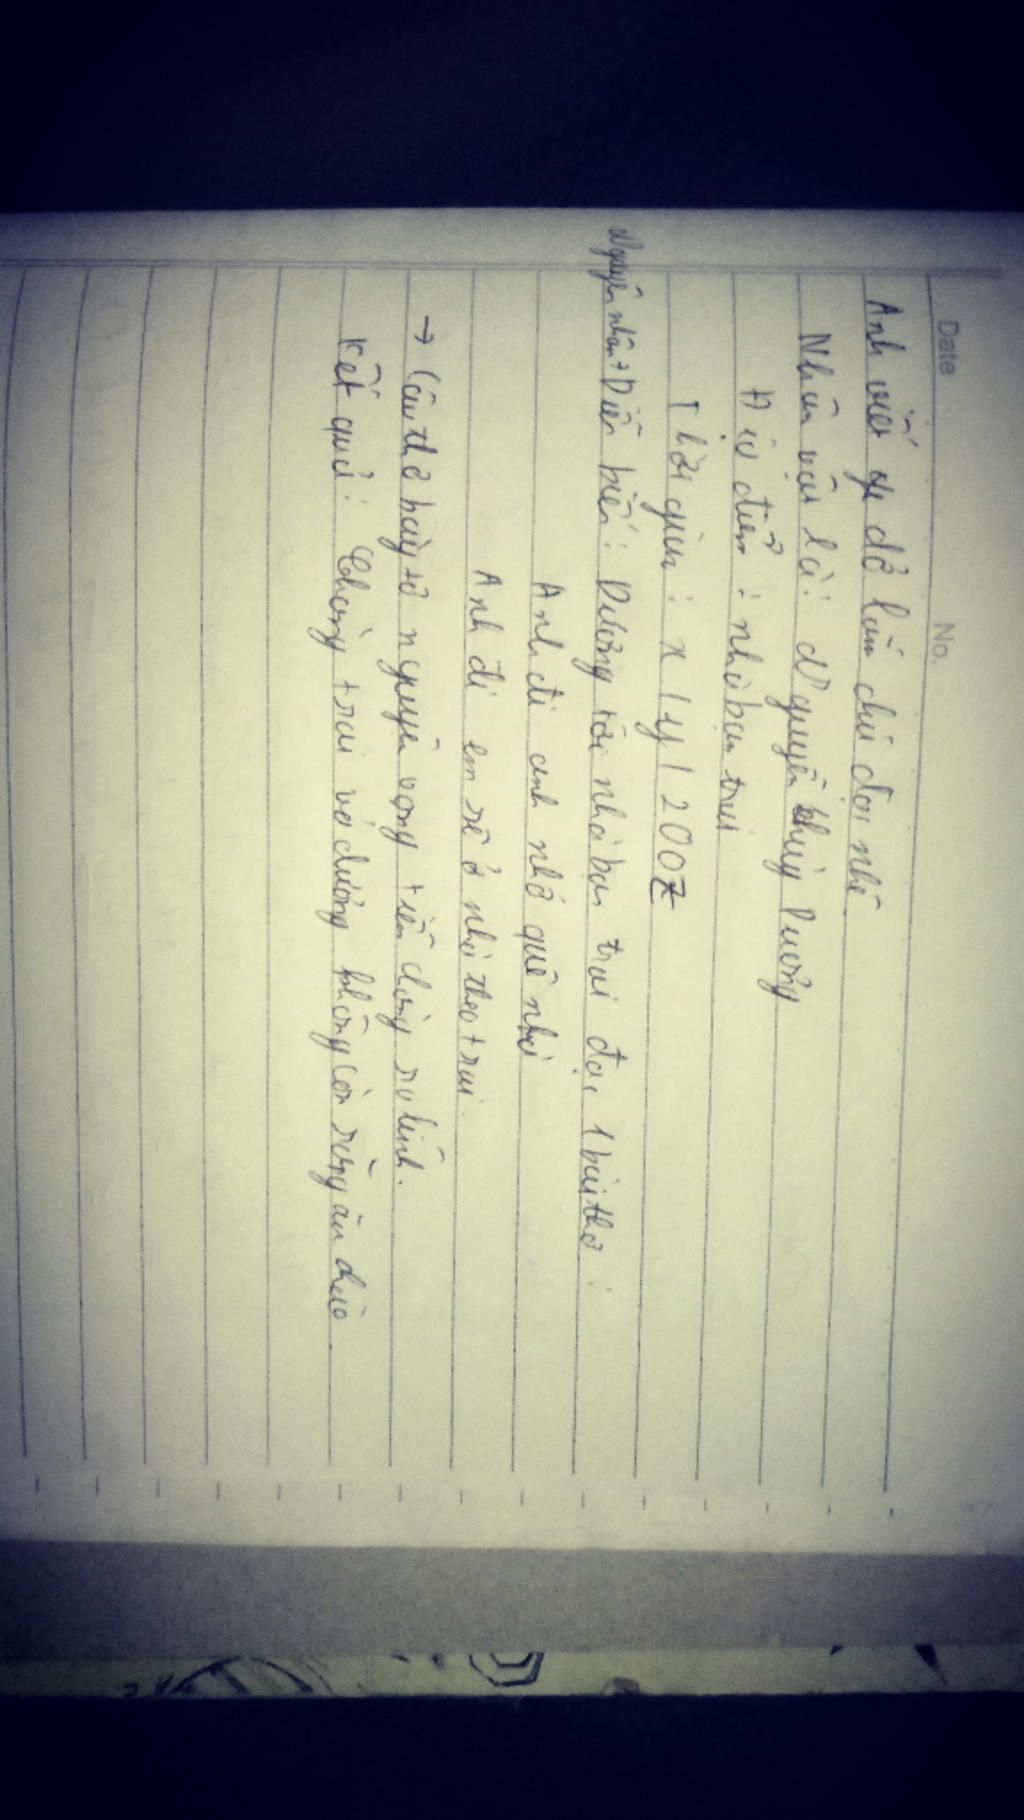 Date No.
Anh viết gì đó làm chủ đợi nhé
Nhân vật là: Nguyễn Thùy Dương
Địa điểm: nhà bạn trai
Thời gian: x/y/200Z
Nguyên nhân + Diễn biến: Dương tới nhà bạn trai đọc 1 bài thơ:
Anh đi anh nhớ quê nhà
Anh đi em sẽ ở nhà theo trai.
→ Câu thơ bày tỏ nguyện vọng tiễn chàng ra lính.
Kết quả: Chàng trai và dương không còn răng ăn cháo.